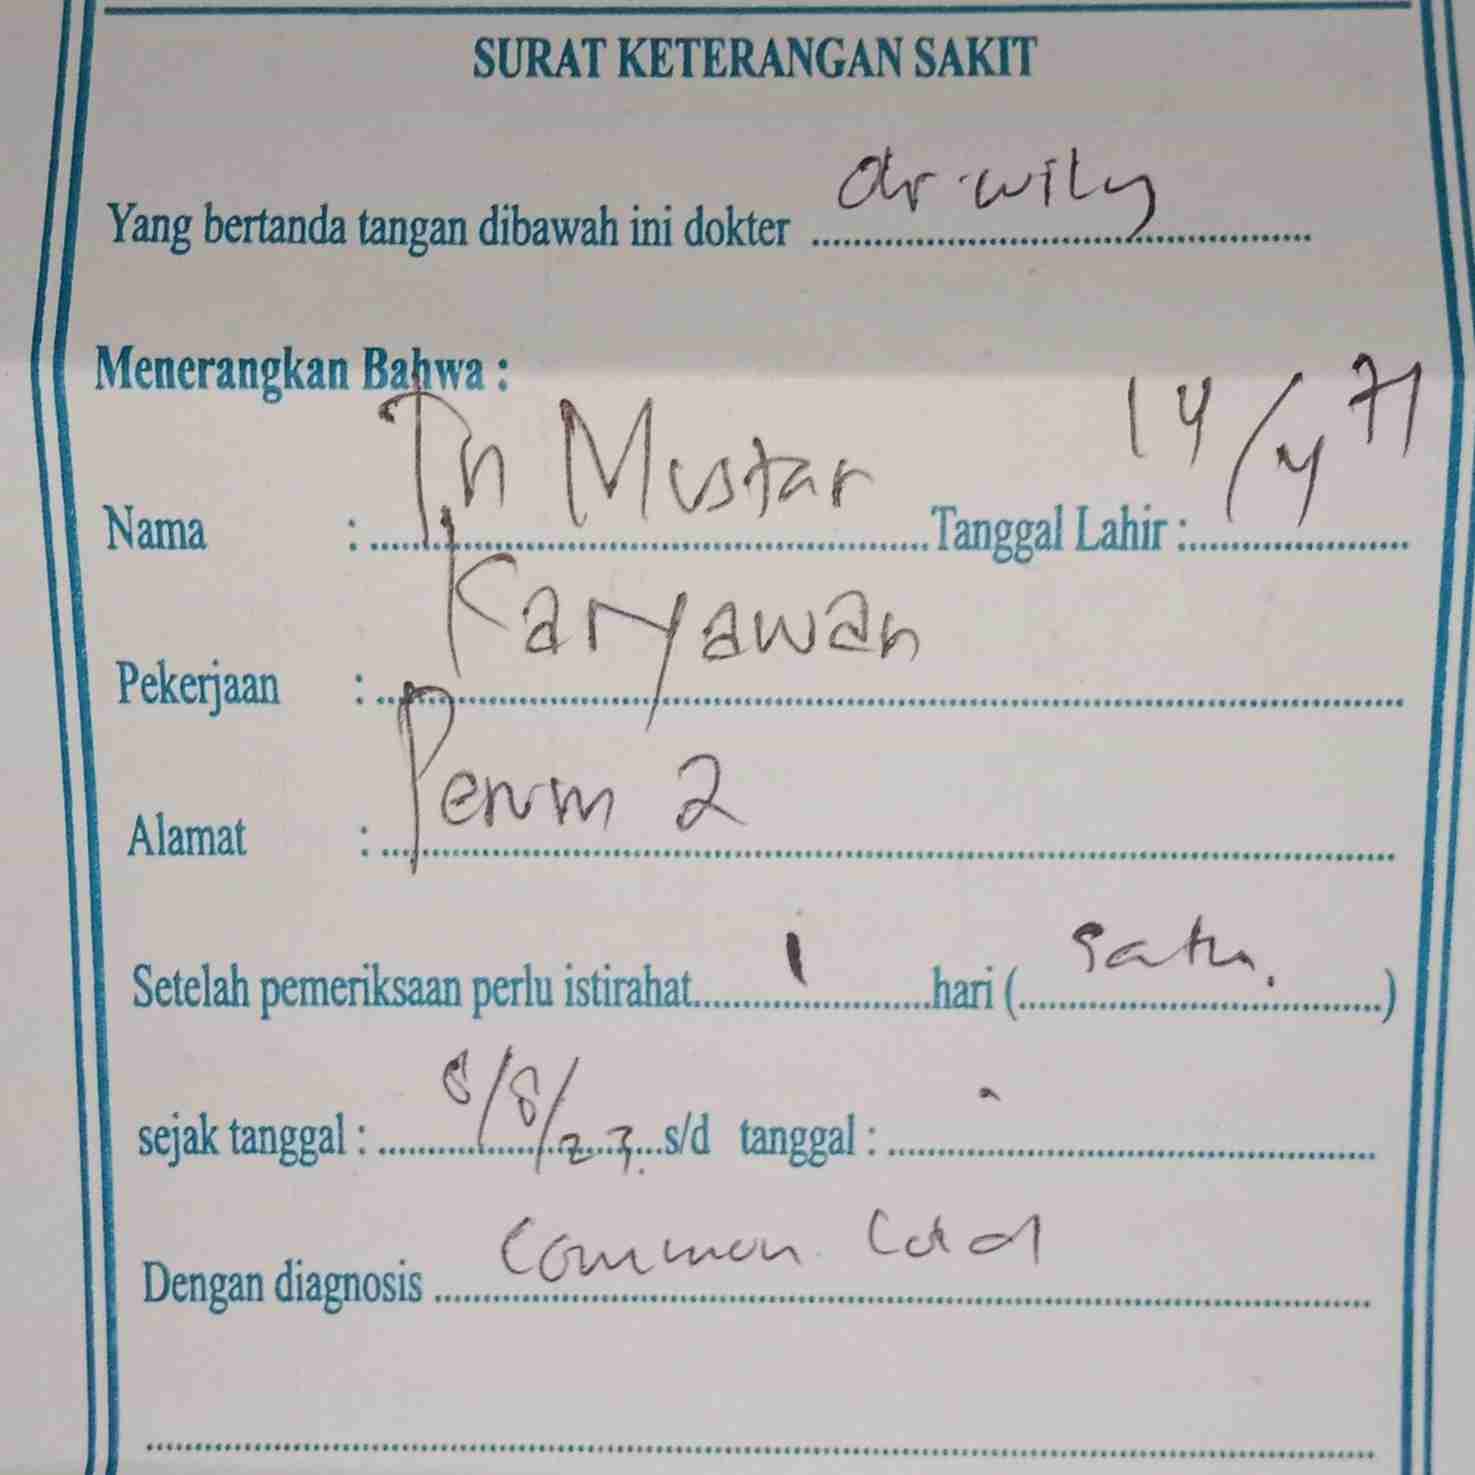 SURAT KETERANGAN SAKIT
Yang bertanda tangan dibawah ini dokter dr. wily
Menerangkan Bahwa :
Nama : Tn Mustar Tanggal Lahir : 14/4 71
Pekerjaan : Karyawan
Alamat : Perum 2
Setelah pemeriksaan perlu istirahat 1 hari ( satu. )
sejak tanggal : 8/8/23. s/d tanggal : -
Dengan diagnosis common cold